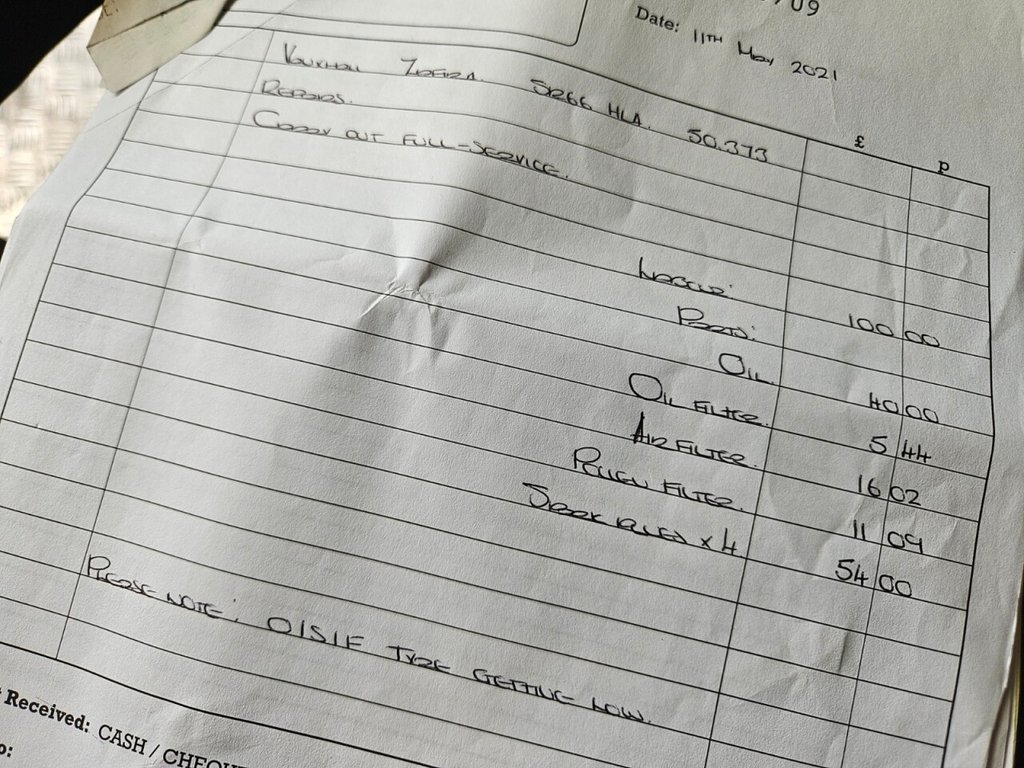 /09
Date: 11TH MAY 2021
£ P
VAUXHALL ZAFIRA. HLA. 50.373
REPAIRS.
CARRY OUT FULL-SERVICE.
LABOUR:
100 00
PARTS:
OIL. 40 00
OIL FILTER. 5 44
AIR FILTER. 16 02
POLLEN FILTER. 11 09
SPARK PLUGS x 4 54 00
PLEASE NOTE: O/S/F TYRE GETTING LOW.
Received: CASH / CHEQU
o: